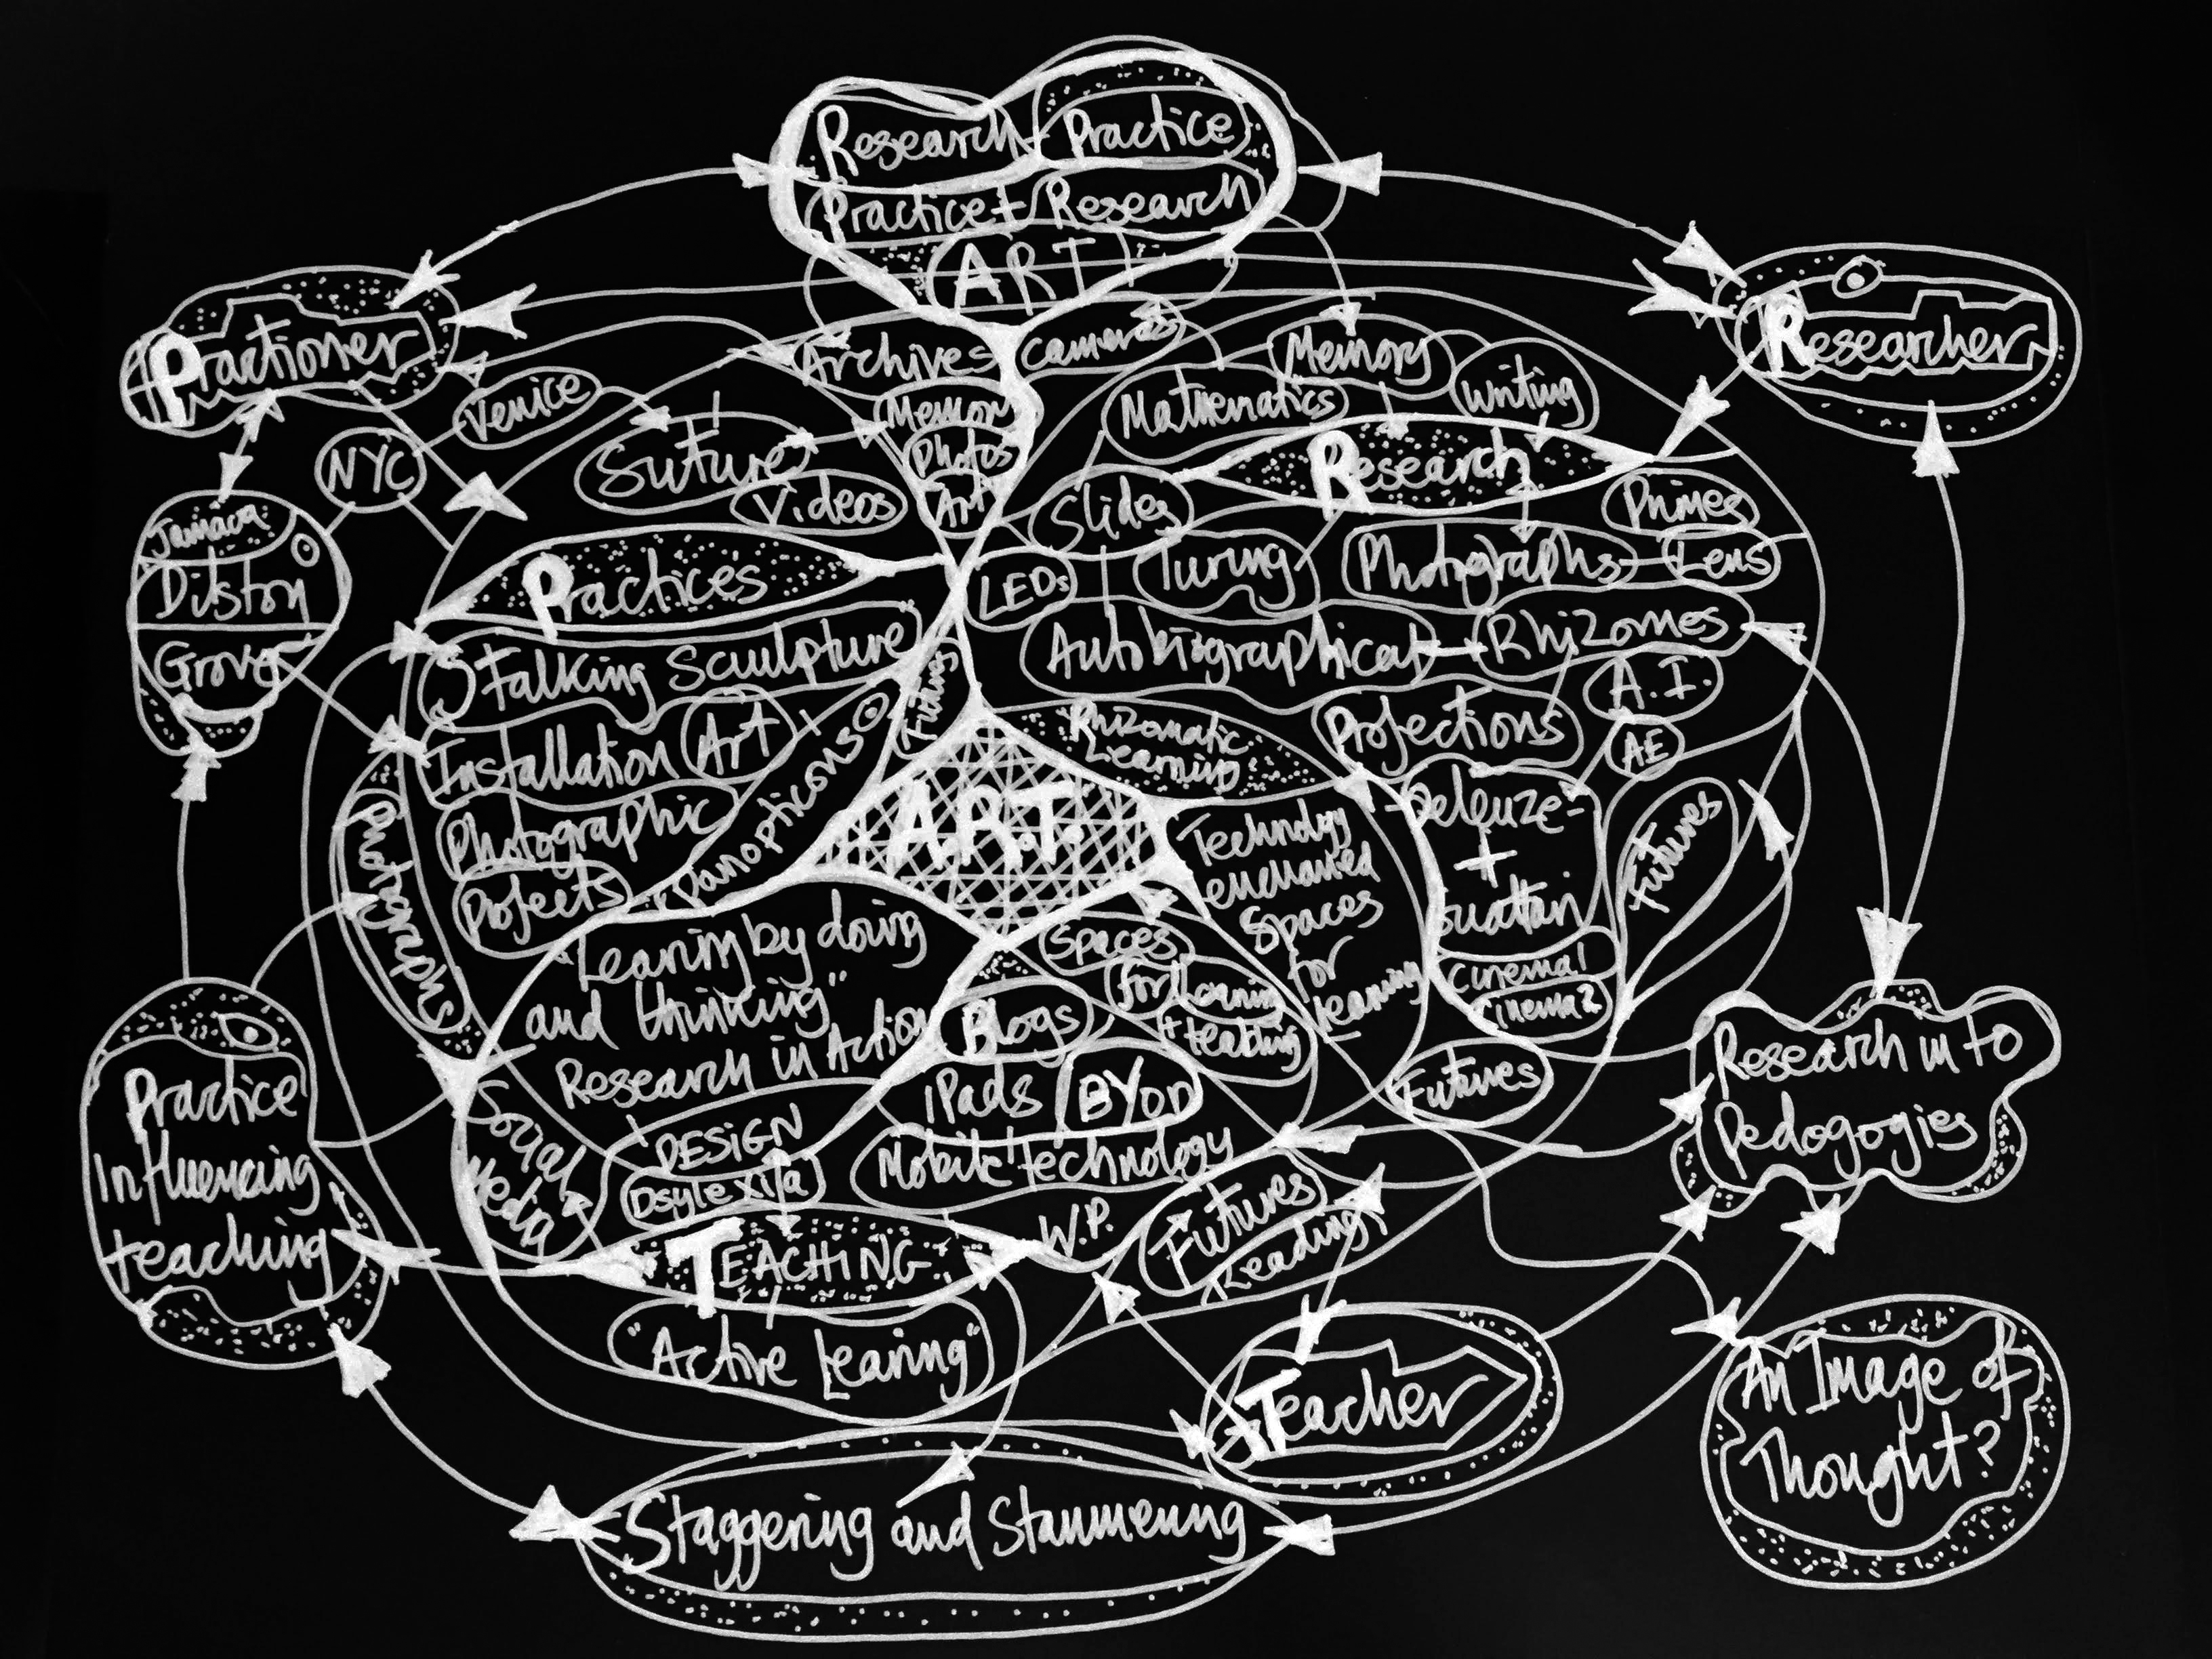 Research
Practice
Practice + Research
ART
Practioner
Researcher
Archives
cameras
Memory
Venice
Mathematics
Writing
Memory
NYC
Suture
Photos
Research
Videos
Art
Slides
Primes
Jamaica
Dilston
Grove
Practices
LEDs
Turing
Photographs
Lens
Talking Sculpture
Futures
Autobiographical
Rhizomes
A.I.
Installation Art
Panopticons
Rhizomatic
Learning
Projections
AE
Photographic
Projects
A.R.T.
Technology
enchanced
Spaces
for
learning
Deleuze
+
Guattari
Futures
Cinema 1
Cinema 2
Photographs
"Learning by doing
and thinking"
Research in Action
Spaces
for Learning
+ teaching
Blogs
iPads
BYOD
Futures
Research in to
Pedogogies
Practice
Influencing
teaching
Social
Media
DESIGN
Dsylexia
Mobile Technology
W.P.
Futures
Leading
TEACHING
"Active Learing"
Teacher
An Image of
Thought?
Staggering and Stammering